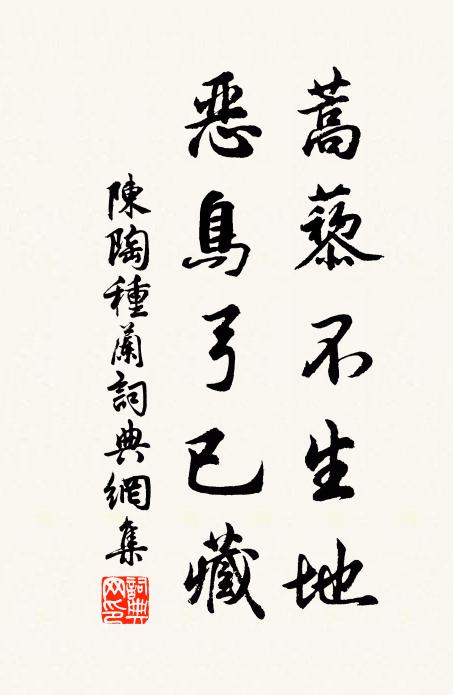 蒿藜不生地
惡鳥弓已藏
陳陶種蘭詞典網集
詞典網印